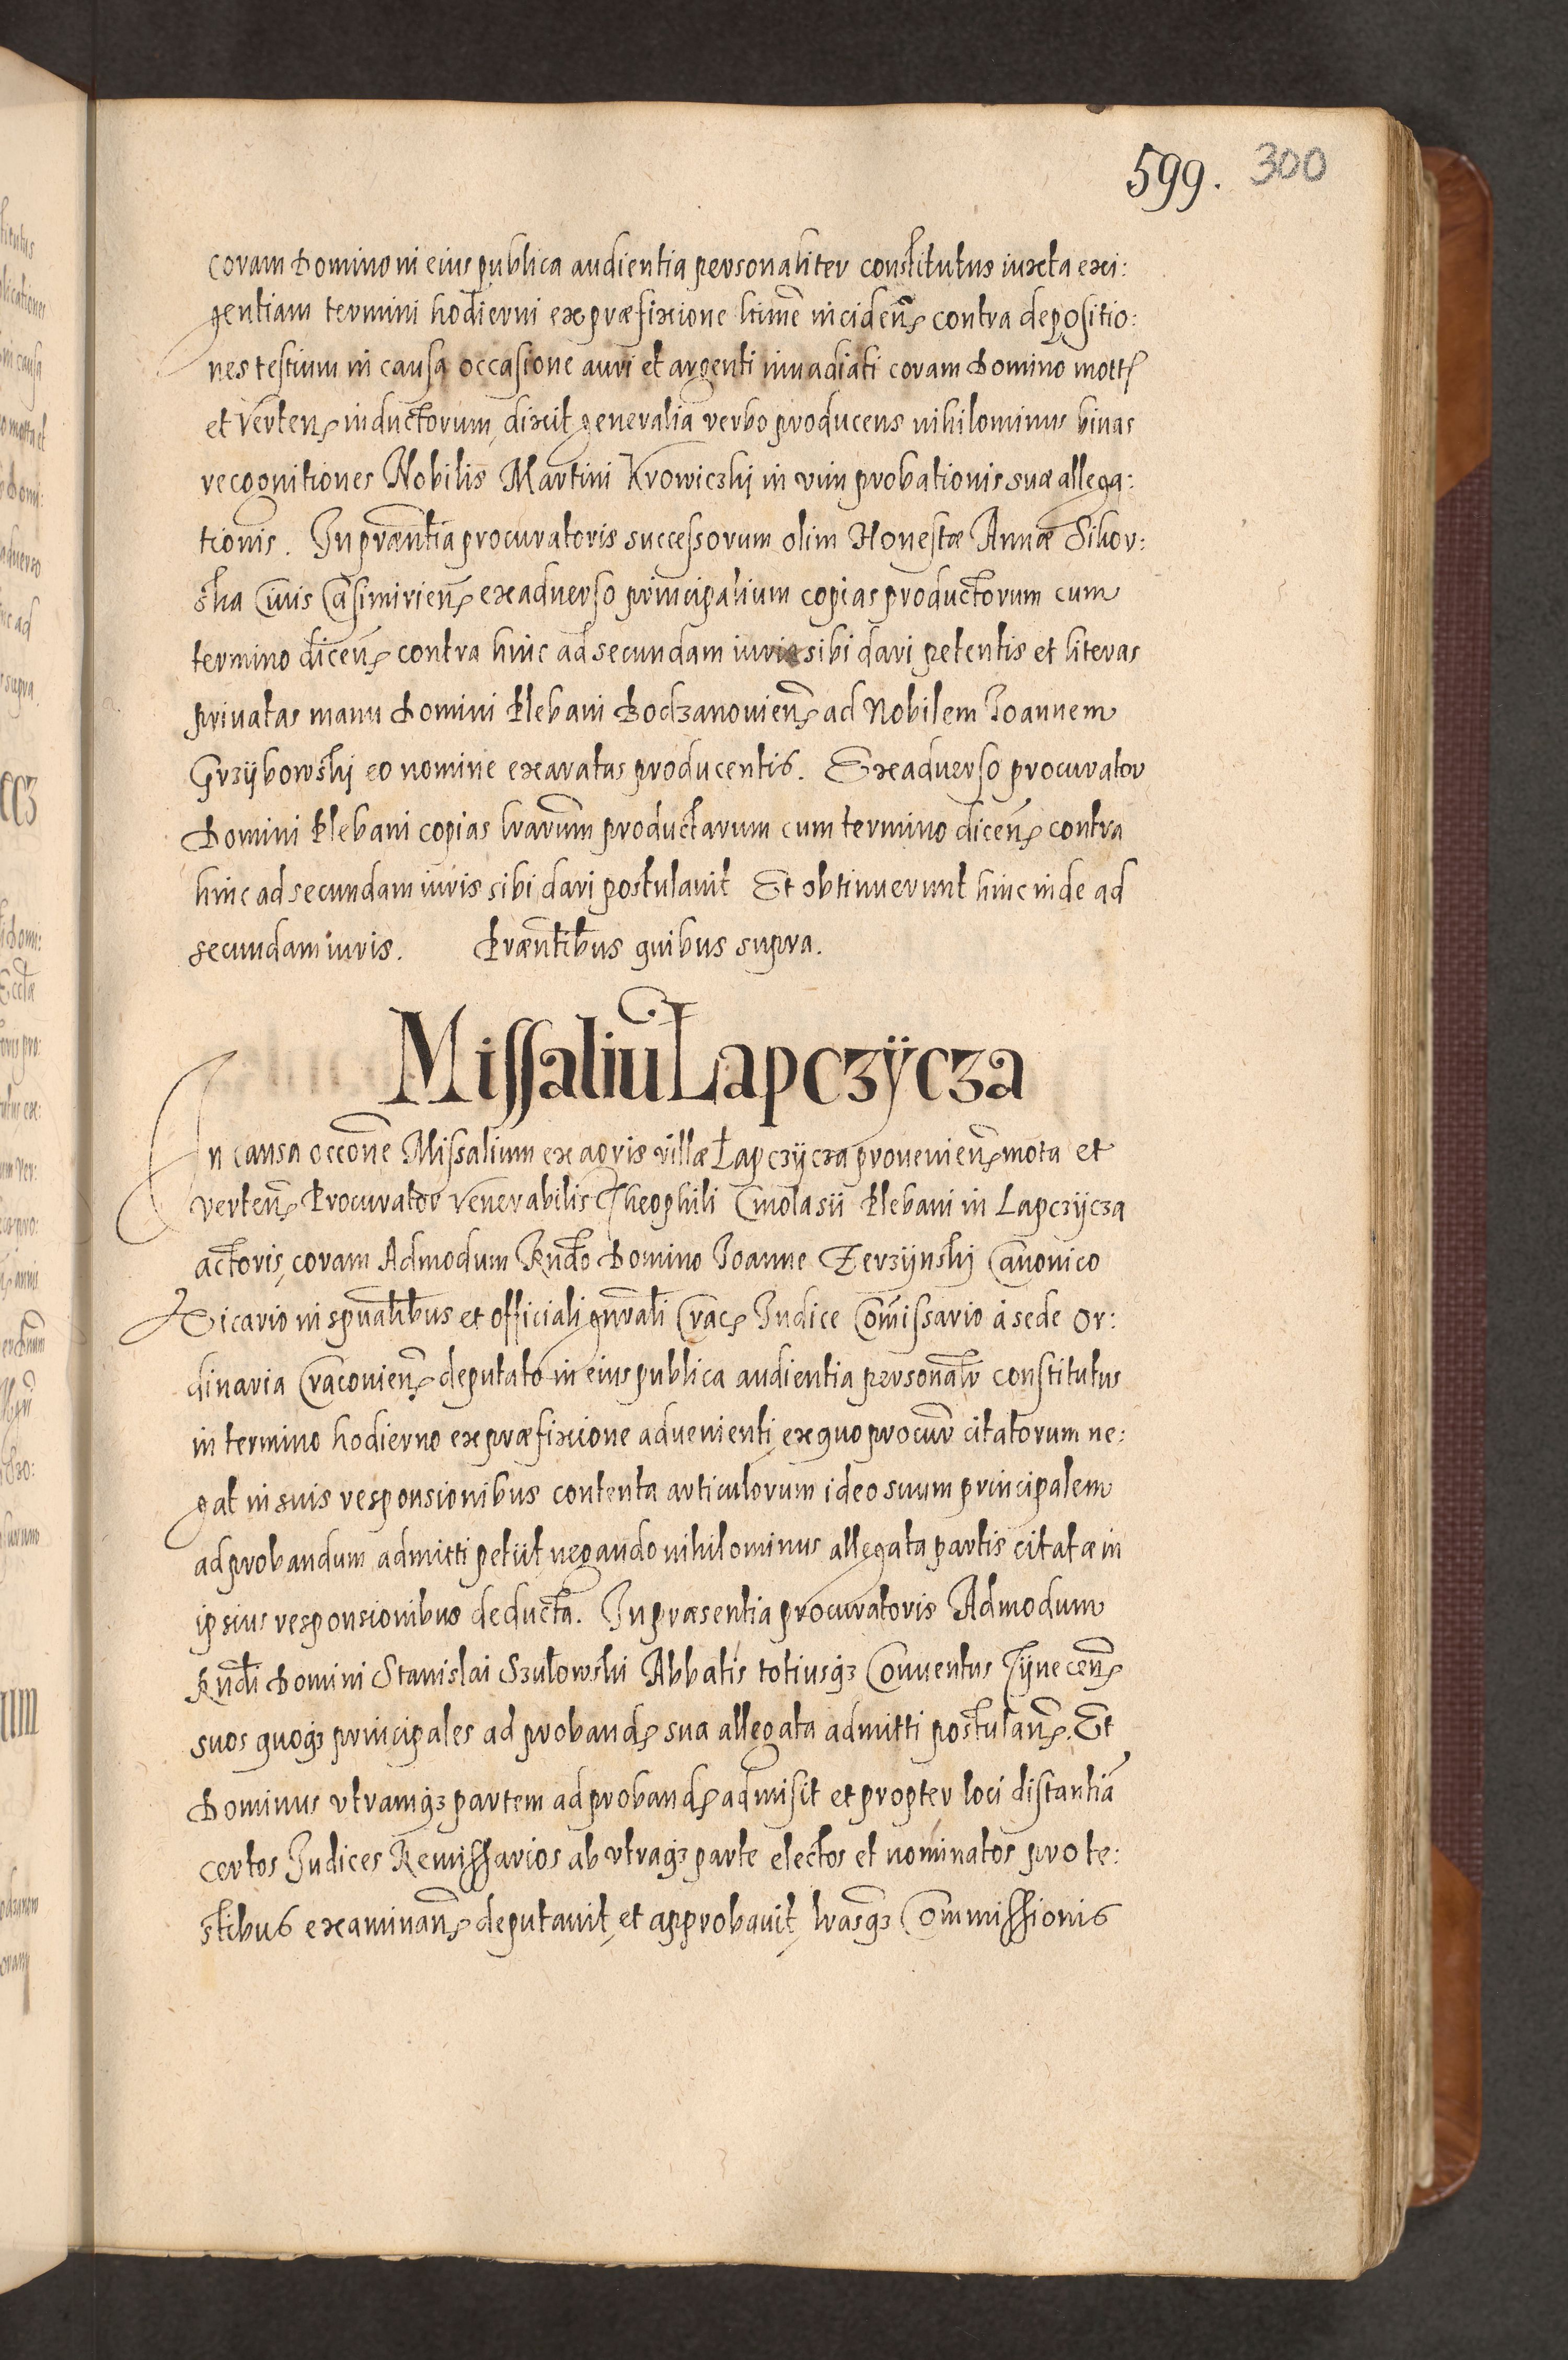 599. 300
coram Domino in eius publica audientia personaliter constitutus iuxta exi:
gentiam termini hodierni ex præfixione ltime incideñ contra depositio:
nes testium in causa occasione auri et argenti inuadiati coram Domino mott
et verteñ inductorum, dixit generalia verbo producens nihilominus binas
recognitiones Nobilis Martini Krowiczki in vim probationis suæ allega:
tionis. In præntia procuratoris successorum olim Honestæ Annæ Sikor:
ska Ciuis Casimirieñ ex aduerso principalium copias productorum cum
termino diceñ contra hinc ad secundam iuris sibi dari petentis et literas
priuatas manu Domini Plebani Bodzanouieñ ad Nobilem Joannem
Grzÿbowski eo nomine exaratas producentis. Ex aduerso procurator
Domini Plebani copias lrarum productarum cum termino diceñ contra
hinc ad secundam iuris sibi dari postulauit Et obtinuerunt hinc inde ad
secundam iuris. Præntibus quibus supra.
Missaliū Lapczÿcza
In causa occone Missalium ex agris villæ Lapczÿcza prouenieñ mota et
verteñ Procurator Venerabilis Theophili Cmolasii Plebani in Lapczÿcza
actoris, coram Admodum Rndo Domino Joanne Zerzÿnski Canonico
Vicario in spualibus et officiali gnrali Crac Judice Comissario à sede or:
dinaria Cracouieñ deputato in eius publica audientia personalr constitutus
in termino hodierno ex præfixione aduenienti, ex quo procur citatorum ne:
gat in suis responsionibus contenta articulorum ideo suum principalem
ad probandum admitti petiit negando nihilominus allegata partis citatæ in
ipsius responsionibus deducta. In præsentia procuratoris Admodum
Rndi Domini Stanislai Szulowski Abbatis totiusqꝫ Conuentus Tÿneceñ
suos quoqꝫ principales ad proband sua allegata admitti postulañ. Et
Dominus vtramqꝫ partem ad proband admisit et propter loci distantiā
certos Judices Remissarios ab vtraqꝫ parte electos et nominatos pro te:
stibus examinañ deputauit, et approbauit, lrasqꝫ Commissionis